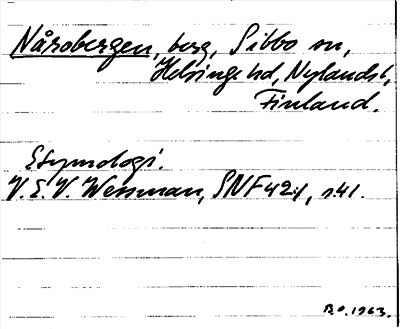 Nårobergen, berg, Sibbo sn,
Helsinge hd, Nylands l,
Finland.
Etymologi.
V. E. V. Wessman, SNF 42:1, s. 41.
B.O. 1963.